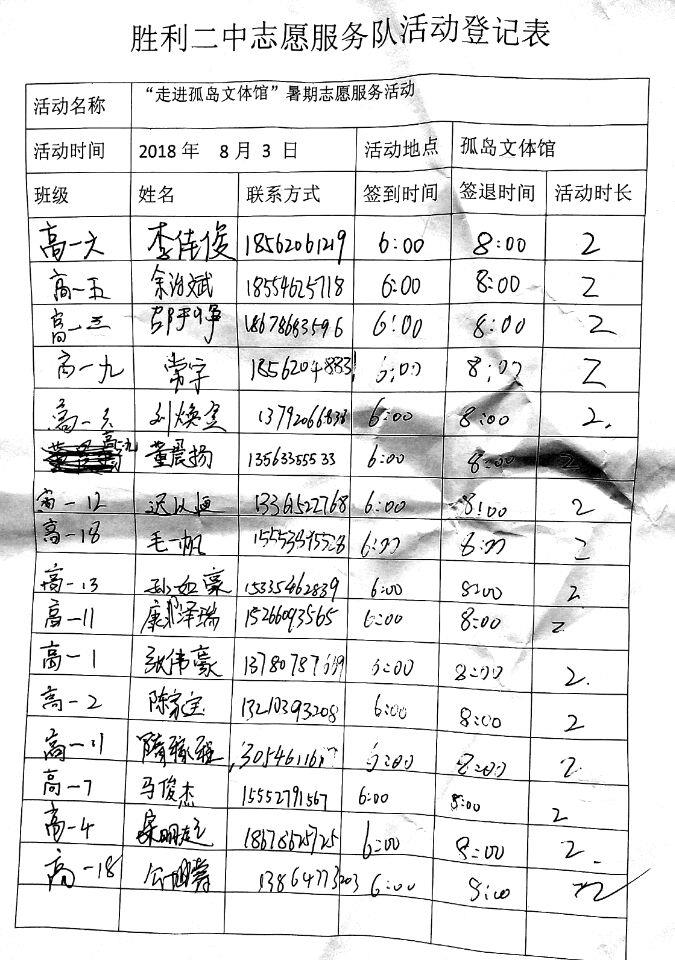 胜利二中志愿服务队活动登记表
活动名称 “走进孤岛文体馆”暑期志愿服务活动
活动时间 2018年 8月 3日 活动地点 孤岛文体馆
班级 姓名 联系方式 签到时间 签退时间 活动时长
高一六 李佳俊 18562061219 6:00 8:00 2
高一五 余治斌 18554625718 6:00 8:00 2
高一三 18678683596 6:00 8:00 2
高一九 常宇 6:00 8:00 2
高一六 刘焕 6:00 8:00 2.
高一九 董晨扬 13563355533 6:00 8:00 2
高一12 迟以 13361522768 6:00 8:00 2
高一18 毛一帆 6:00 8:00 2
高一13 孙如豪 15335462839 6:00 8:00 2
高一11 康泽瑞 15266093565 6:00 8:00 2
高一1 张伟豪 6:00 8:00 2.
高一2 陈家宝 13210393208 6:00 8:00 2
高一11 隋 6:00 8:00 2.
高一7 马俊杰 15552791567 6:00 8:00 2
高一4 18678625725 6:00 8:00 2.
高一18 13864773203 6:00 8:00 2